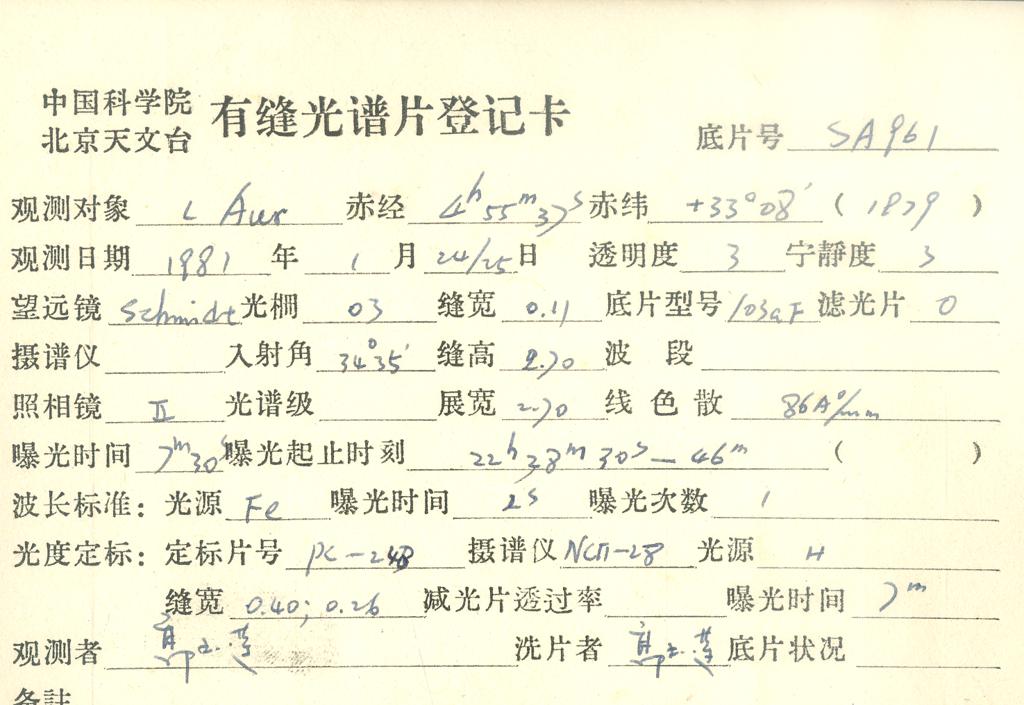 中国科学院
北京天文台
有缝光谱片登记卡
底片号 SA961
观测对象 ι Aur 赤经 4h 55m 37s 赤纬 +33°08′ ( 1879 )
观测日期 1981 年 1 月 24/25 日 透明度 3 宁静度 3
望远镜 Schmidt 光栅 03 缝宽 0.11 底片型号 103aF 滤光片 0
摄谱仪 入射角 34°35′ 缝高 2.70 波段
照相镜 II 光谱级 展宽 2.70 线色散 86A°/mm
曝光时间 7m30s 曝光起止时刻 22h38m30s—46m ( )
波长标准: 光源 Fe 曝光时间 2s 曝光次数 1
光度定标: 定标片号 PC-248 摄谱仪 光源 H
缝宽 0.40; 0.26 减光片透过率 曝光时间 7m
观测者 洗片者 底片状况
备註